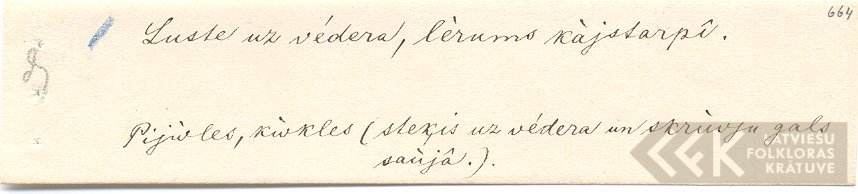 664
Luste uz védera, lèrums kàjstarpî.
Pijòles, kòkles (steķis uz védera un skrùvju gals
saùjâ.).
LATVIEŠU
FOLKLORAS
KRĀTUVE